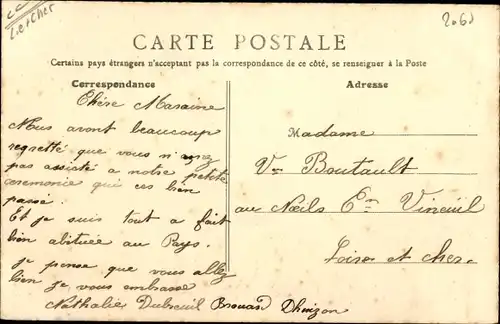 Loir et Cher
2060
CARTE POSTALE
Certains pays étrangers n'acceptant pas la correspondance de ce côté, se renseigner à la Poste
Correspondance
Chère Maraine
Nous avont beaucoup
regretté que vous n'ayez
pas assisté a notre petite
ceremonie qui ces bien
passé.
Et je suis tout a fait
bien abituée au Pays.
je pense que vous allez
bien je vous embrasse
Nathalie Dubreuil Brouard Dhuizon
Adresse
Madame
Vve Boutault
au Nœils En Vineuil
Loire et cher.